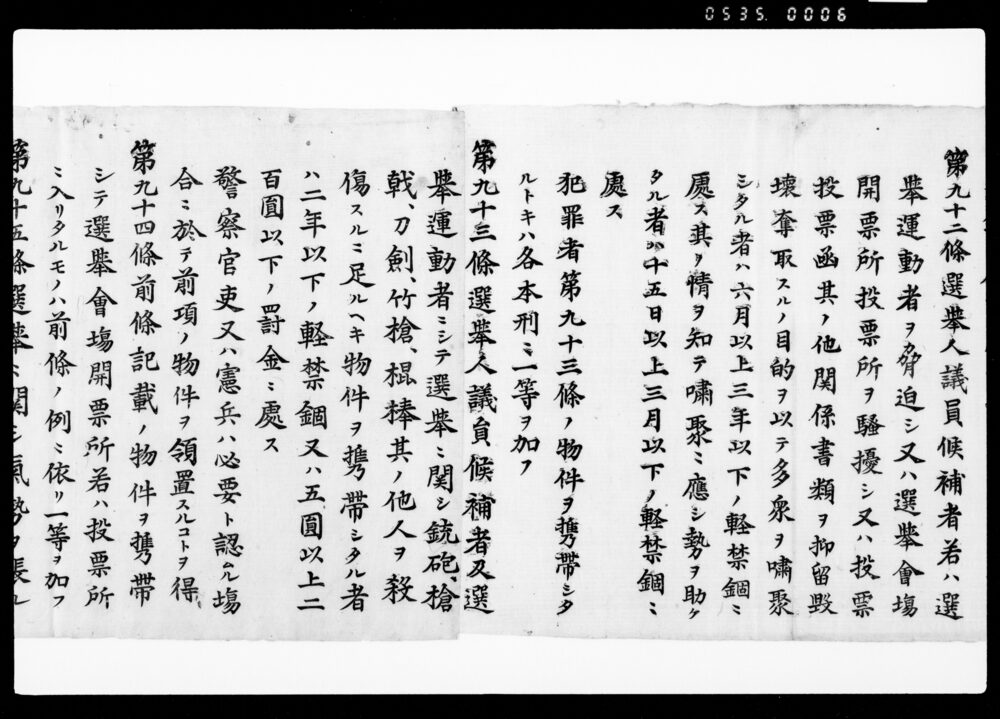 0535. 0006
第九十二條選擧人議員候補者若ハ選
擧運動者ヲ脅迫シ又ハ選擧會塲
開票所投票所ヲ騷擾シ又ハ投票
投票函其ノ他関係書類ヲ抑留毀
壊奪取スルノ目的ヲ以テ多衆ヲ嘯聚
シタル者ハ六月以上三年以下ノ軽禁錮ニ
處ス其ノ情ヲ知テ嘯聚ニ應シ勢ヲ助ケ
タル者ハ十五日以上三月以下ノ軽禁錮ニ
處ス
犯罪者第九十三條ノ物件ヲ携帶シタ
ルトキハ各本刑ニ一等ヲ加フ
第九十三條選擧人議員候補者及選
擧運動者ニシテ選擧ニ関シ銃砲、槍
戟、刀劍、竹槍、棍棒其ノ他人ヲ殺
傷スルニ足ルヘキ物件ヲ携帶シタル者
ハ二年以下ノ軽禁錮又ハ五圓以上二
百圓以下ノ罰金ニ處ス
警察官吏又ハ憲兵ハ必要ト認ムル塲
合ニ於テ前項ノ物件ヲ領置スルコトヲ得
第九十四條前條記載ノ物件ヲ携帶
シテ選擧會塲開票所若ハ投票所
ニ入リタルモノハ前條ノ例ニ依リ一等ヲ加フ
第九十五條選擧ニ関シ氣勢ヲ張ル